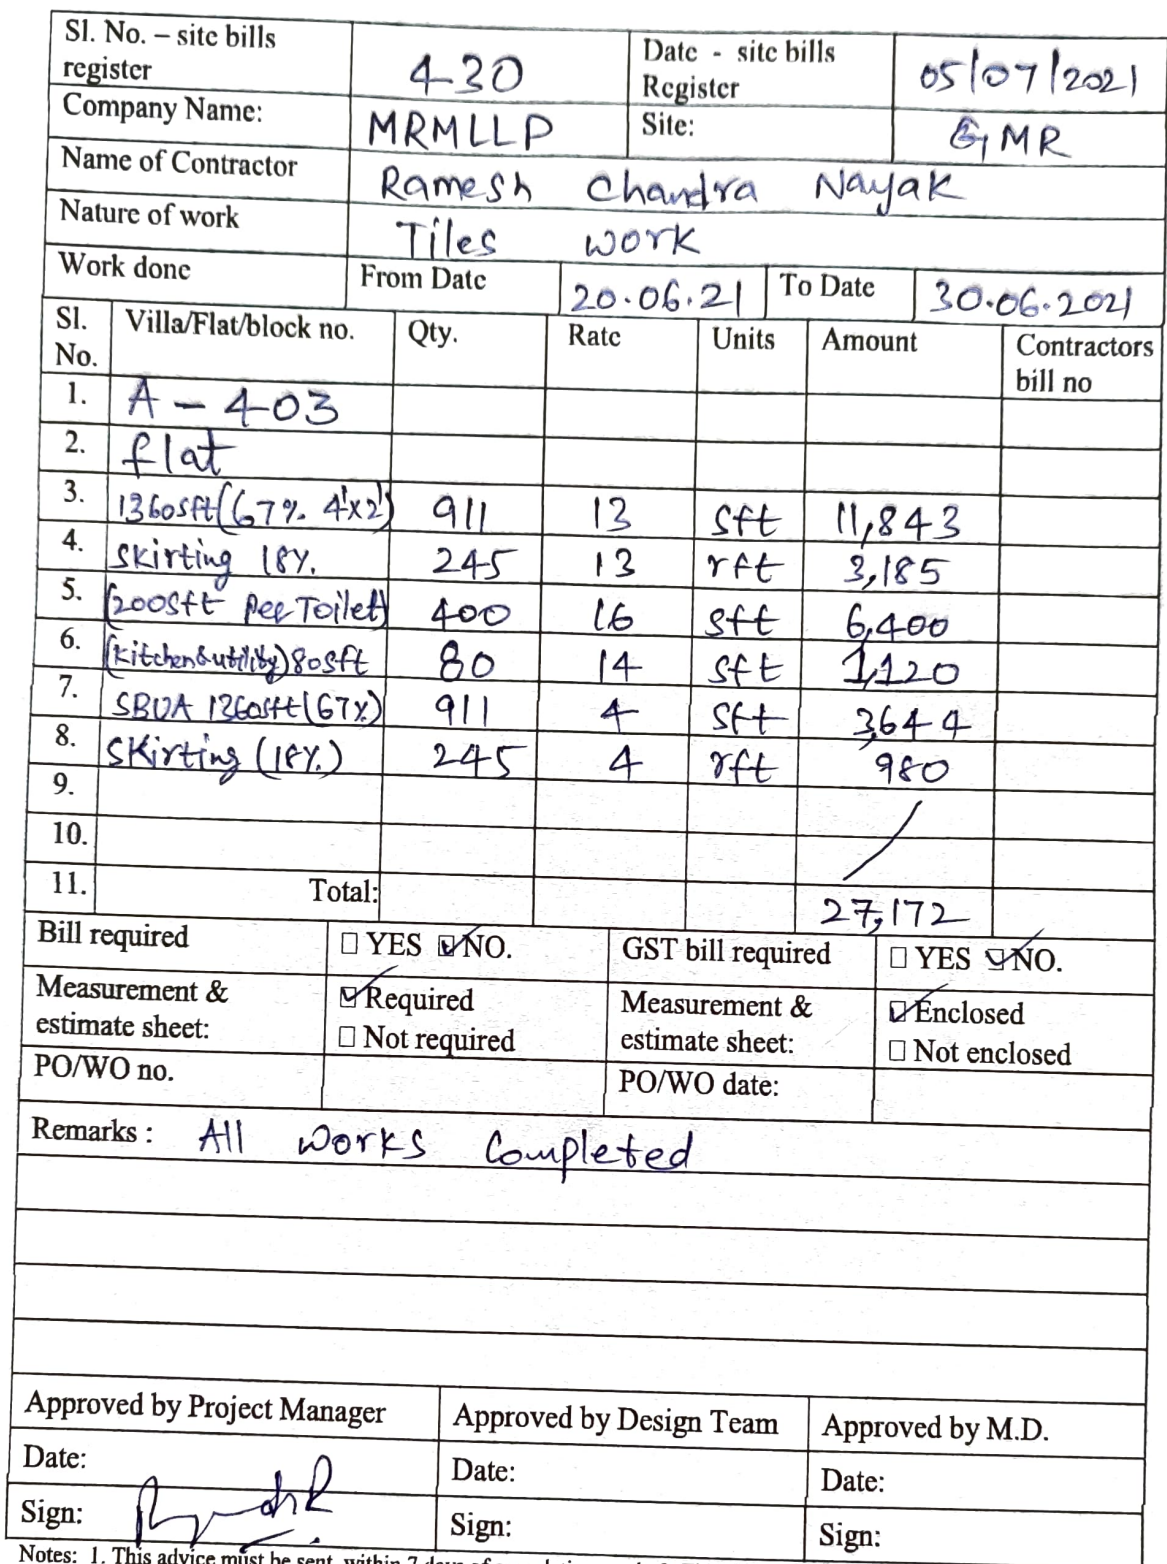 Sl. No. – site bills register 430 Date - site bills Register 05/07/2021
Company Name: MRMLLP Site: GMR
Name of Contractor Ramesh Chandra Nayak
Nature of work Tiles work
Work done From Date 20.06.21 To Date 30.06.2021
Sl. No. Villa/Flat/block no. Qty. Rate Units Amount Contractors bill no
1. A - 403
2. flat
3. 1360sft(67% 4'x2') 911 13 sft 11,843
4. skirting 18%. 245 13 rft 3,185
5. (200sft per Toilet) 400 16 sft 6,400
6. (kitchen&utility)80sft 80 14 sft 1,120
7. SBUA 1360sft(67%) 911 4 sft 3,644
8. Skirting (18%.) 245 4 rft 980
9.
10.
11. Total: 27,172
Bill required ☐ YES ☑ NO. GST bill required ☐ YES ☑ NO.
Measurement & estimate sheet: ☑ Required ☐ Not required Measurement & estimate sheet: ☑ Enclosed ☐ Not enclosed
PO/WO no. PO/WO date:
Remarks : All works Completed
Approved by Project Manager Approved by Design Team Approved by M.D.
Date: Date: Date:
Sign: Sign: Sign:
Notes: 1. This advice must be sent within 7 days of